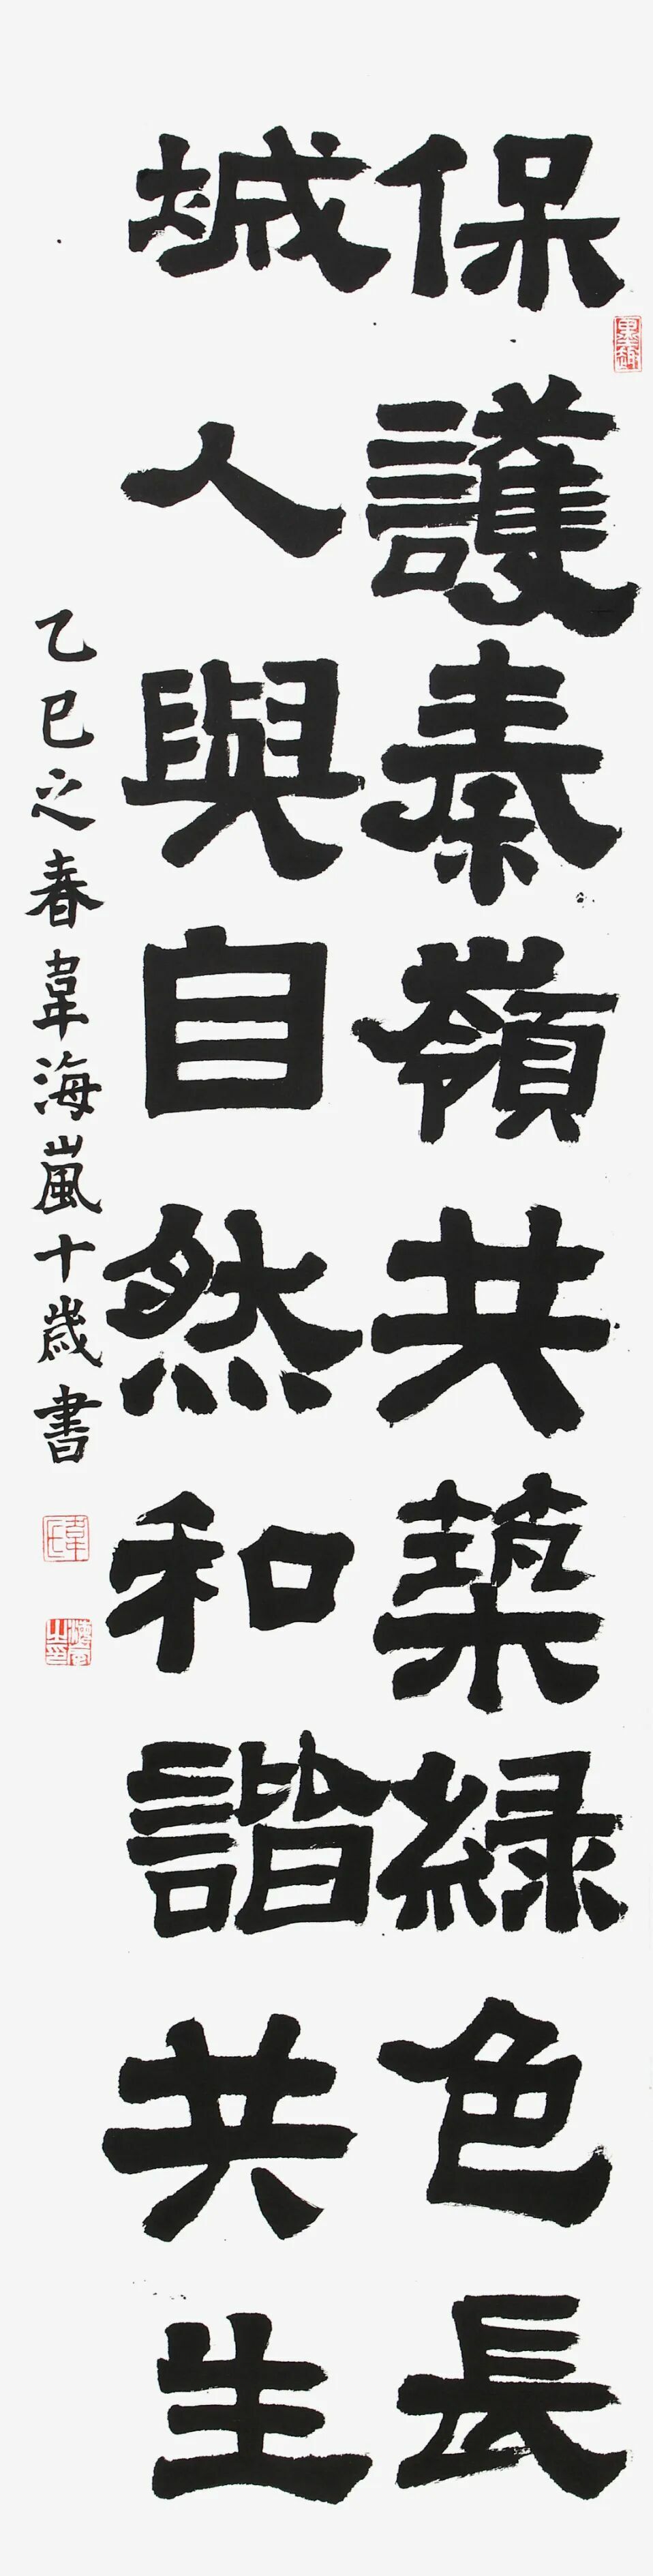 保護秦嶺共築緑色長
城人與自然和諧共生
乙巳之春韋海嵐十歳書